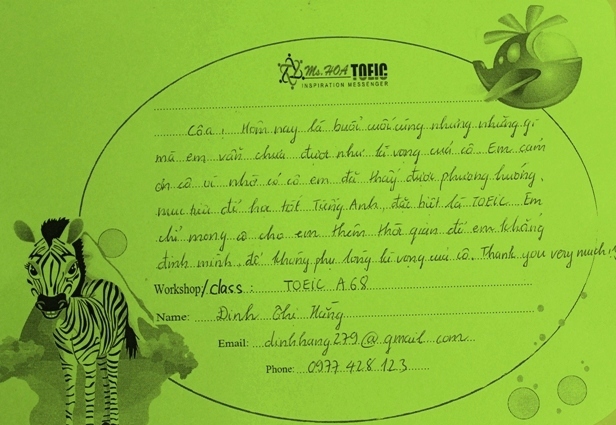 Ms. HOA TOEIC
INSPIRATION MESSENGER
Cô ạ, Hôm nay là buổi cuối cùng nhưng những gì
mà em vẫn chưa được như kì vọng của cô. Em cảm
ơn cô vì nhờ có cô em đã thấy được phương hướng,
mục tiêu để học tốt Tiếng Anh, đặc biệt là TOEIC. Em
chỉ mong cô cho em thêm thời gian để em khẳng
định mình để không phụ lòng kì vọng của cô. Thank you very much!
Workshop/Class: TOEIC A68
Name: Đinh Thị Hằng
Email: dinhhang279@gmail.com
Phone: 0977 428 123